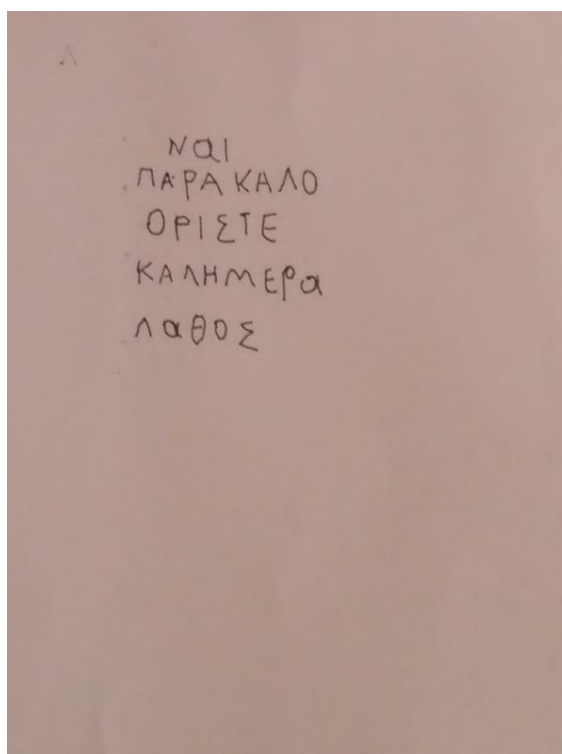 Ναι
ΠΑΡΑΚΑΛΟ
ΟΡΙΣΤΕ
ΚΑΛΗΜΕΡα
ΛαθΟΣ